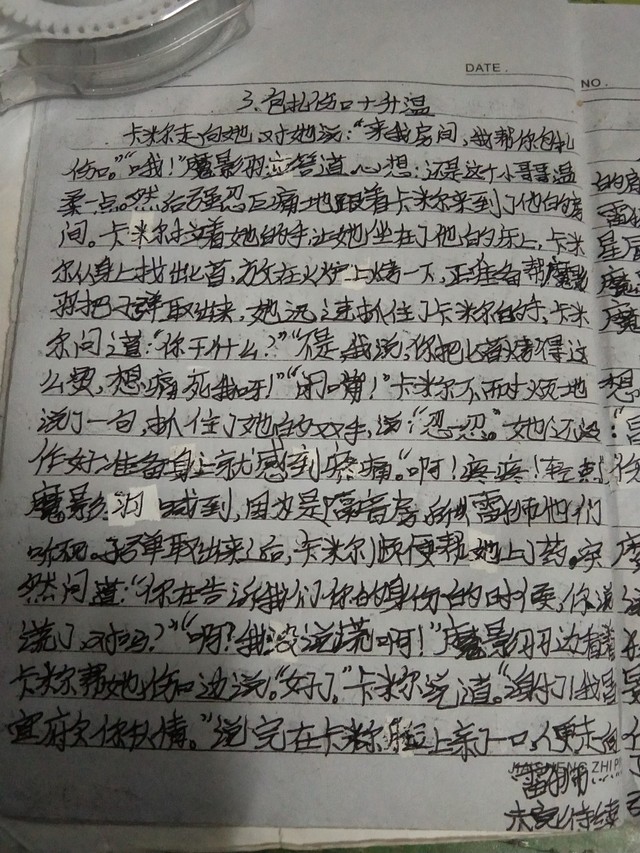 DATE.
NO.
3.包扎伤口+升温
卡米尔走向她,对她说:“来我房间,我帮你包扎
伤口。”“哦!”魔影羽应答道,心想:还是这个小哥哥温
柔一点。然后强忍巨痛地跟着卡米尔来到了他的房
间。卡米尔拉着她的手,让她坐在了他的床上,卡米
尔从身上找出匕首,放在火炉上烤一下,正准备帮魔影
羽把子弹取出来,她迅速抓住了卡米尔的手,卡米
尔问道:“你干什么?”“不是,我说,你把匕首烤得这
么烫,想痛死我呀!”“闭嘴!”卡米尔不耐烦地
说了一句,抓住了她的双手,说:“忍一忍。”她还没
作好准备身上就感到疼痛。“啊!疼疼!轻点!
魔影羽喊到,因为是隔音房,所以雷狮他们
听不见。子弹取出来之后,卡米尔顺便帮她上了药。突
然问道:“你在告诉我们你的身份的时候,你说
谎了,对吗?”“啊?我没说谎啊!”魔影羽边看着
卡米尔帮她伤口边说。“好了。”卡米尔说道。“谢了!我
宣府欠你人情。”说完在卡米尔脸上亲了一口,便走向
雷狮
未完待续